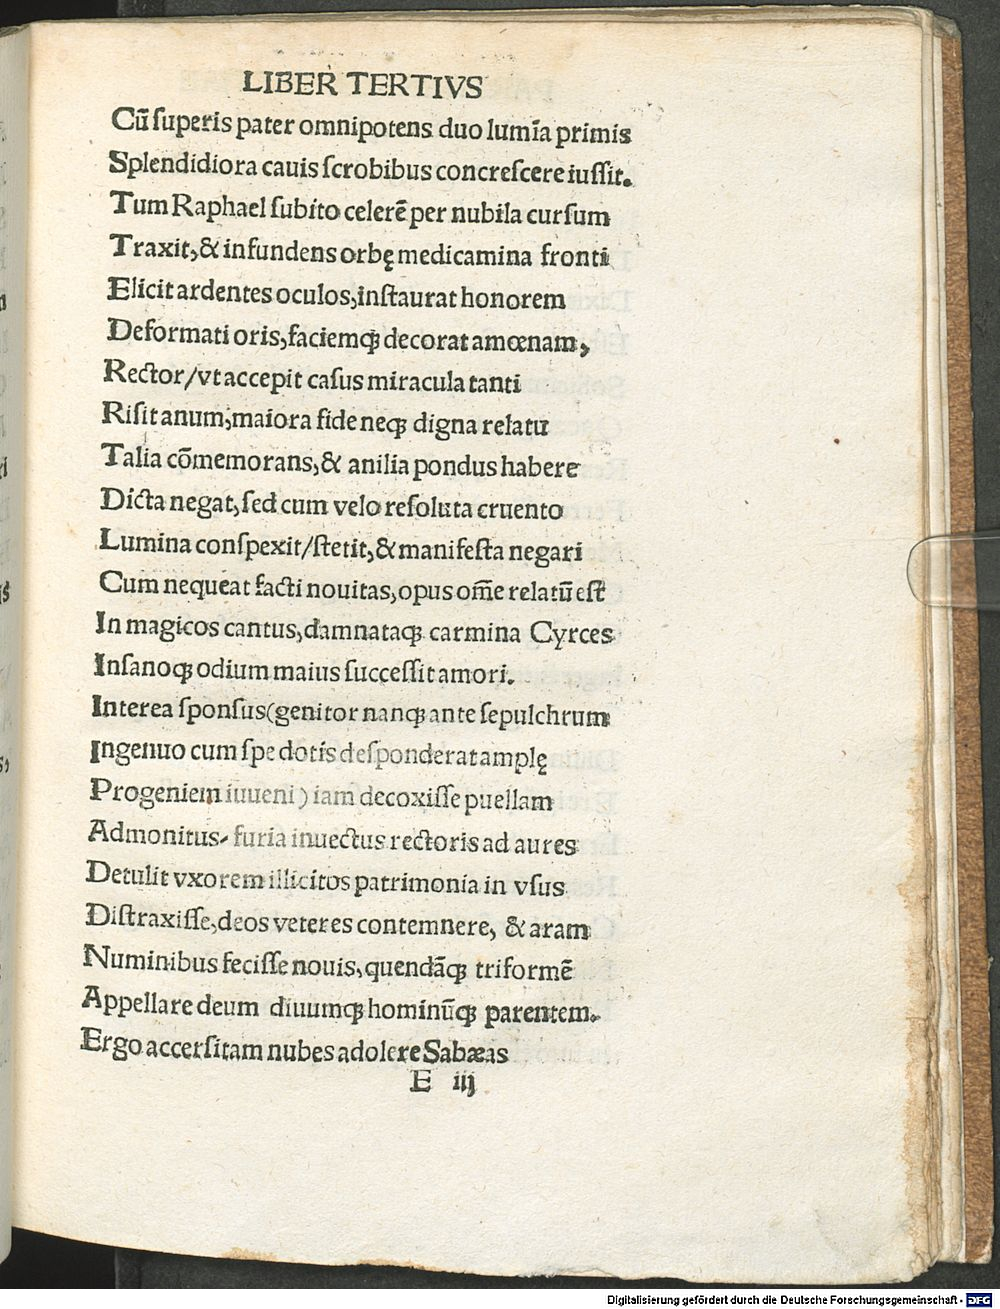 LIBER TERTIVS
Cū ſuperis pater omnipotens duo lumīa primis
Splendidiora cauis ſcrobibus concreſcere iuſſit.
Tum Raphael ſubito celerē per nubila curſum
Traxit,& infundens orbę medicamina fronti
Elicit ardentes oculos,inſtaurat honorem
Deformati oris,faciemq; decorat amœnam,
Rector/vt accepit caſus miracula tanti
Riſit anum,maiora fide neq; digna relatu
Talia cōmemorans,& anilia pondus habere
Dicta negat,ſed cum velo reſoluta cruento
Lumina conſpexit/ſtetit,& manifeſta negari
Cum nequeat facti nouitas,opus om̄e relatū eſt
In magicos cantus,damnataq; carmina Cyrces
Inſanoq; odium maius ſucceſſit amori.
Interea ſponſus(genitor nanq; ante ſepulchrum
Ingenuo cum ſpe dotis deſponderat amplę
Progeniem iuueni) iam decoxiſſe puellam
Admonitus, furia inuectus rectoris ad aures
Detulit vxorem illicitos patrimonia in vſus
Diſtraxiſſe,deos veteres contemnere, & aram
Numinibus feciſſe nouis,quendāq; triformē
Appellare deum diuumq; hominūq; parentem.
Ergo accerſitam nubes adolere Sabæas
E iij
Digitalisierung gefördert durch die Deutsche Forschungsgemeinschaft - DFG